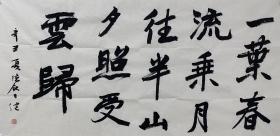 一葉春
流乗月
往半山
夕照受
雲歸
辛丑夏